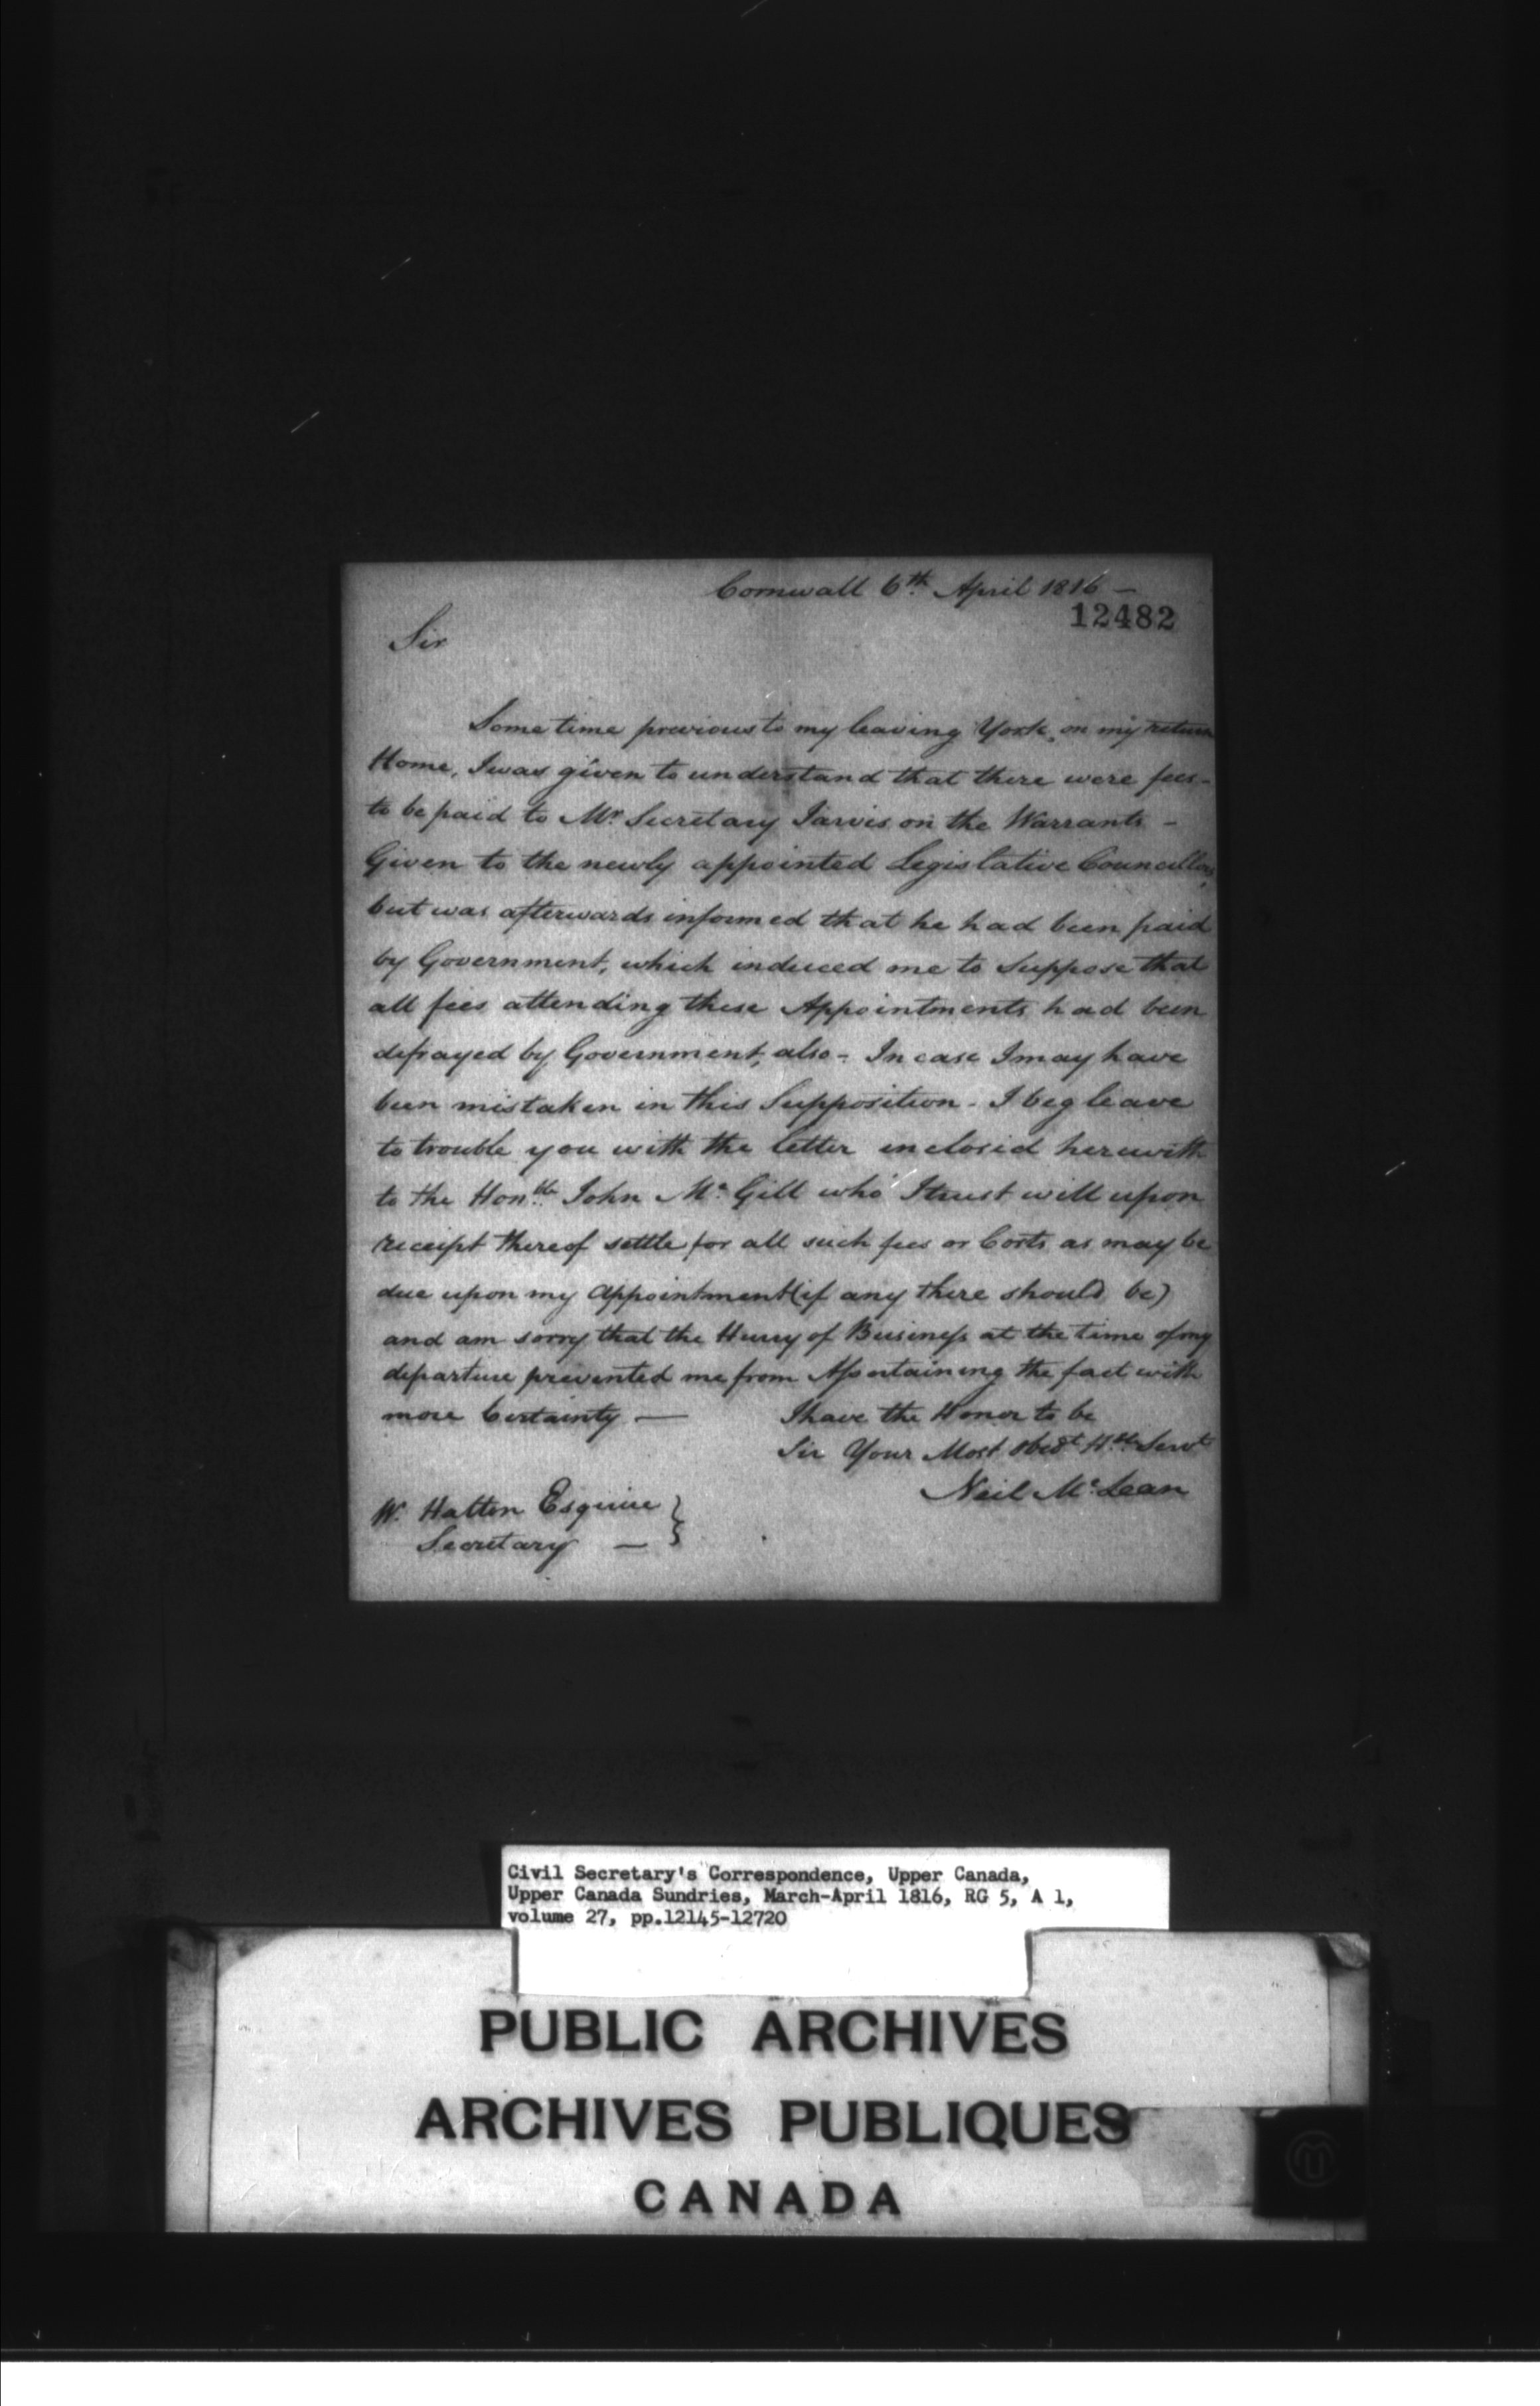 Cornwall 6th April 1816 —
12482
Sir
Some time previous to my leaving York, on my return
Home, I was given to understand that there were fees -
to be paid to Mr Secretary Jarvis on the Warrants -
Given to the newly appointed Legislative Councillors,
but was afterwards informed that he had been paid
by Government, which induced me to Suppose that
all fees attending these Appointments had been
defrayed by Government, also - In case I may have
been mistaken in this Supposition - I beg leave
to trouble you with the letter inclosed herewith
to the Honble John McGill who I trust will upon
receipt thereof settle for all such fees or Costs as may be
due upon my appointment (if any there should be)
and am sorry that the Hurry of Business at the time of my
departure prevented me from Assertaining the fact with
more Certainty —
I have the Honor to be
Sir Your Most obedt Hble Servt
Neil McLean
W. Halton Esquire
Secretary —
Civil Secretary's Correspondence, Upper Canada,
Upper Canada Sundries, March-April 1816, RG 5, A 1,
volume 27, pp.12145-12720
PUBLIC ARCHIVES
ARCHIVES PUBLIQUES
CANADA